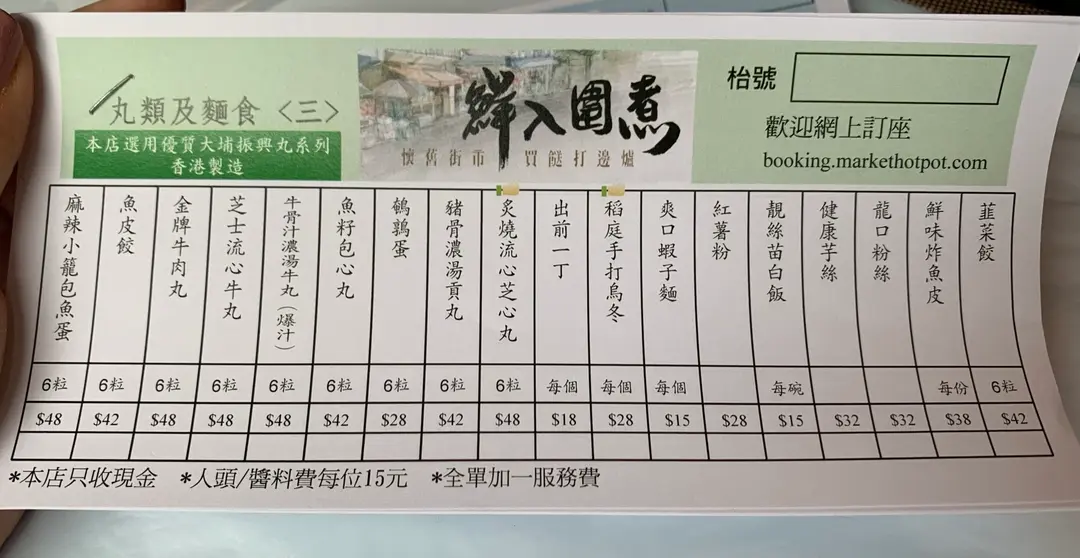 丸類及麵食〈三〉
本店選用優質大埔振興丸系列
香港製造
鱻入圍煮
懷舊街市 買餸打邊爐
枱號
歡迎網上訂座
booking.markethotpot.com
麻辣小籠包魚蛋 6粒 $48
魚皮餃 6粒 $42
金牌牛肉丸 6粒 $48
芝士流心牛丸 6粒 $48
牛骨汁濃湯牛丸（爆汁） 6粒 $48
魚籽包心丸 6粒 $42
鵪鶉蛋 6粒 $28
豬骨濃湯貢丸 6粒 $42
炙燒流心芝心丸 6粒 $48
出前一丁 每個 $18
稻庭手打烏冬 每個 $28
爽口蝦子麵 每個 $15
紅薯粉 $28
靚絲苗白飯 每碗 $15
健康芋絲 $32
龍口粉絲 $32
鮮味炸魚皮 每份 $38
韮菜餃 6粒 $42
*本店只收現金 *人頭/醬料費每位15元 *全單加一服務費